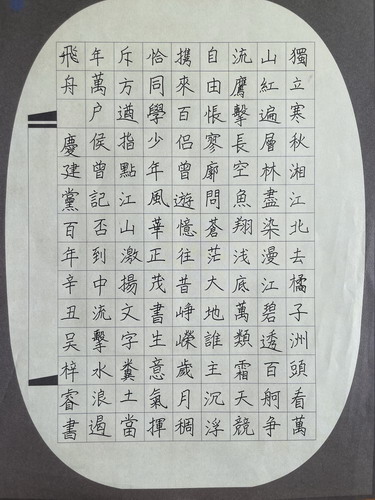 獨立寒秋湘江北去橘子洲頭看萬
山紅遍層林盡染漫江碧透百舸争
流鷹擊長空魚翔浅底萬類霜天競
自由悵寥廓問蒼茫大地誰主沉浮
携來百侣曾遊憶往昔崢嶸歲月稠
恰同學少年風華正茂書生意氣揮
斥方遒指點江山激揚文字糞土當
年萬户侯曾記否到中流擊水浪遏
飛舟 慶建黨百年辛丑吴梓睿書